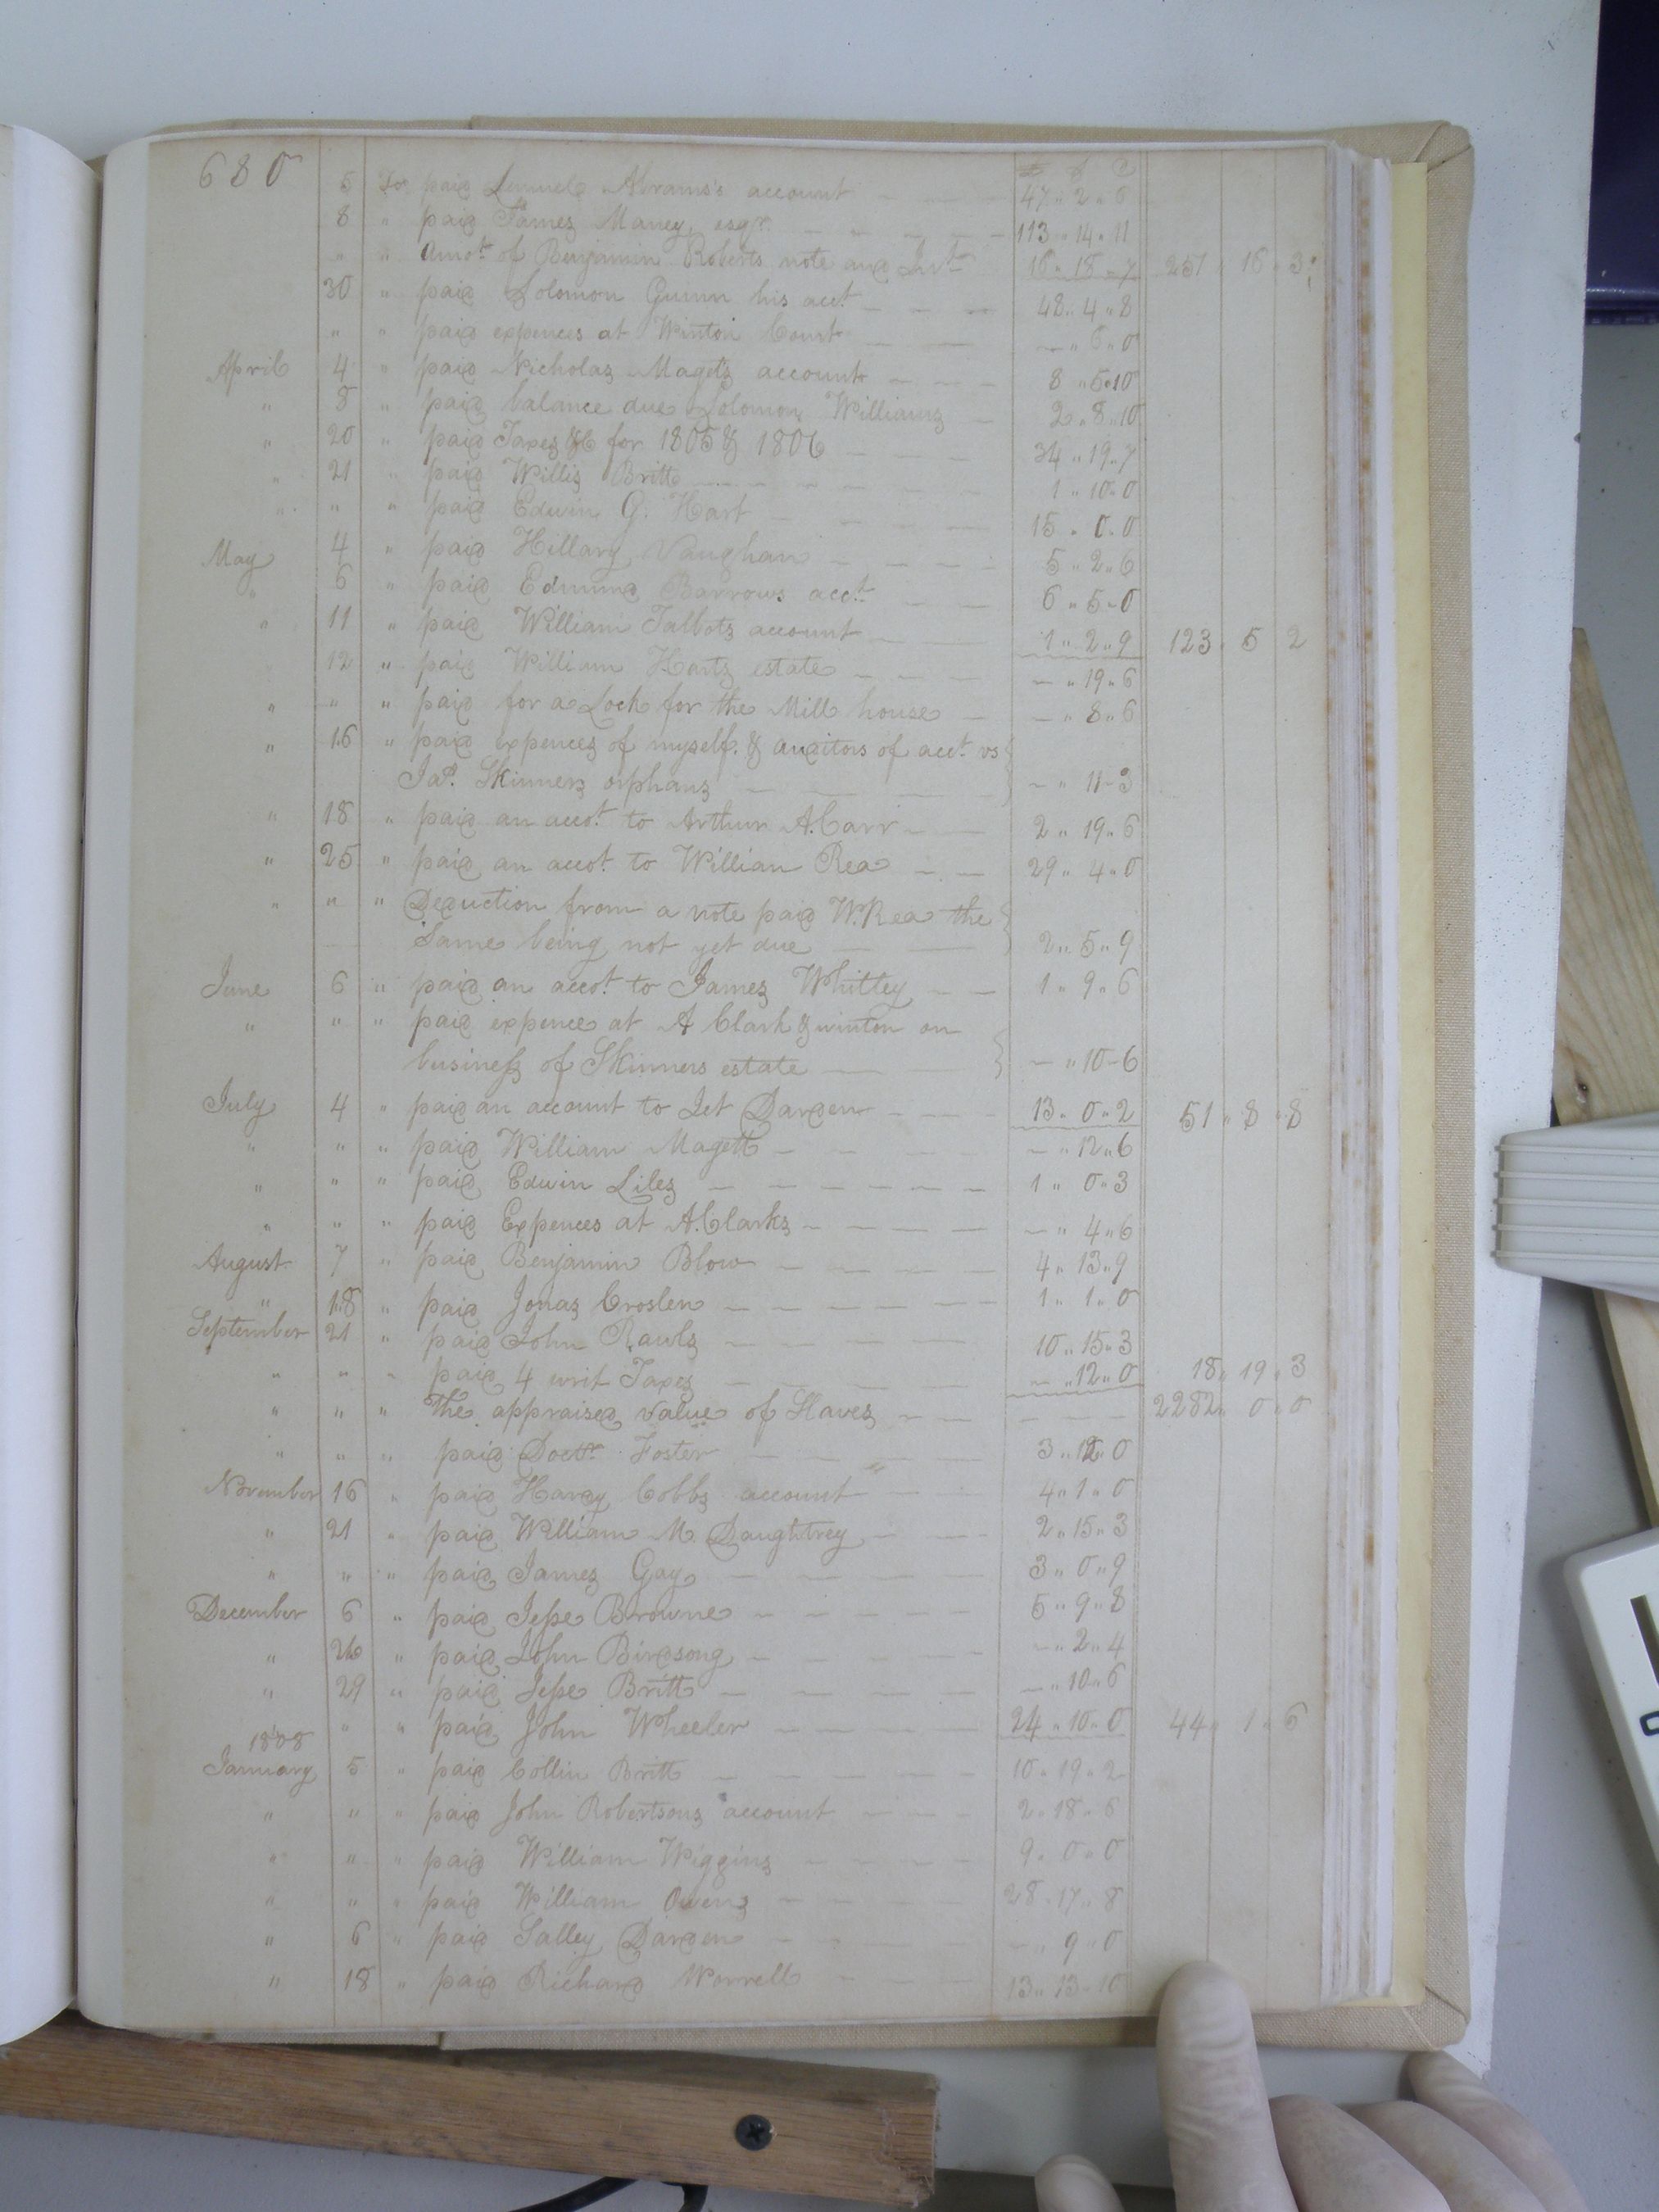 680
£ S D
5 To paid Lemuel Abrams's account 47 " 2 " 6
8 " paid James Maney, esqr. 113 " 14 " 11
" " Amot. of Benjamin Roberts note and Int. 16 " 18 " 7 251 " 16 " 3
30 " paid Solomon Guinn his acct. 48 " 4 " 8
" " paid expences at Winton Court — " 6 " 0
April 4 " paid Nicholas Magets account 8 " 5 " 10
" 8 " paid balance due Solomon Williams 2 " 8 " 10
" 20 " paid Taxes &C for 1805 & 1806 34 " 19 " 7
" 21 " paid Willis Britt 1 " 10 " 0
" " " paid Edwin G. Hart 15 " 0 " 0
May 4 " paid Hillary Vaughan 5 " 2 " 6
" 6 " paid Edmund Barrows acct. 6 " 5 " 0
" 11 " paid William Talbots account 1 " 2 " 9 123 " 5 2
12 " paid William Harts estate — " 19 " 6
" " " paid for a Lock for the Mill house — " 8 " 6
" 16 " paid expences of myself & auditors of acct. vs
Jas. Skinners orphans — " 11 " 3
" 18 " paid an accot. to Arthur A. Carr 2 " 19 " 6
" 25 " paid an accot. to Willian Rea 29 " 4 " 0
" " " Deduction from a note paid W. Rea the
Same being not yet due 2 " 5 " 9
June 6 " paid an accot. to James Whitley 1 " 9 " 6
" " " paid expence at A Clark & winton on
business of Skinners estate — " 10 " 6
July 4 " paid an account to Jet Darden 13 " 0 " 2 51 " 8 " 8
" " " paid William Magett — " 12 " 6
" " " paid Edwin Liles 1 " 0 " 3
" " " paid Expences at A. Clarks — " 4 " 6
August 7 " paid Benjamin Blow 4 " 13 " 9
" 18 " paid Jonas Croslen 1 " 1 " 0
September 21 " paid John Rawls 10 " 15 " 3
" " " paid 4 writ Taxes — " 12 " 0 18 " 19 " 3
" " " The appraised value of Slaves 2282 " 0 " 0
" " " paid Doctr. Foster 3 " 12 " 0
November 16 " paid Hardy Cobbs account 4 " 1 " 0
" 21 " paid William M. Daughtrey 2 " 15 " 3
" " " paid James Gay 3 " 0 " 9
December 6 " paid Jesse Browne 5 " 9 " 8
" 26 " paid John Birdsong — " 2 " 4
" 29 " paid Jesse Britt — " 10 " 6
" " paid John Wheeler 24 " 10 " 0 44 " 1 " 6
1808
January 5 " paid Collin Britt 10 " 19 " 2
" " " paid John Robertsons account 2 " 18 " 6
" " " paid William Wiggins 9 " 0 " 0
" " " paid William Owens 28 " 17 " 8
" 6 " paid Salley Darden — " 9 " 0
" 18 " paid Richard Worrell 13 " 13 " 10